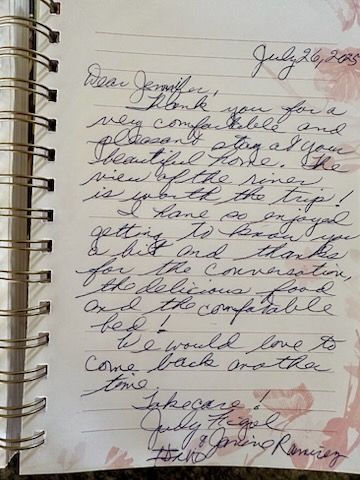 July 26, 2025
Dear Jennifer,
Thank you for a
very comfortable and
pleasant stay at your
beautiful home. The
view of the river
is worth the trip!
I have so enjoyed
getting to know you
a bit and thanks
for the conversation,
the delicious food
and the comfortable
bed!
We would love to
come back another
time.
Take care!
Judy
& Janine Ramirez